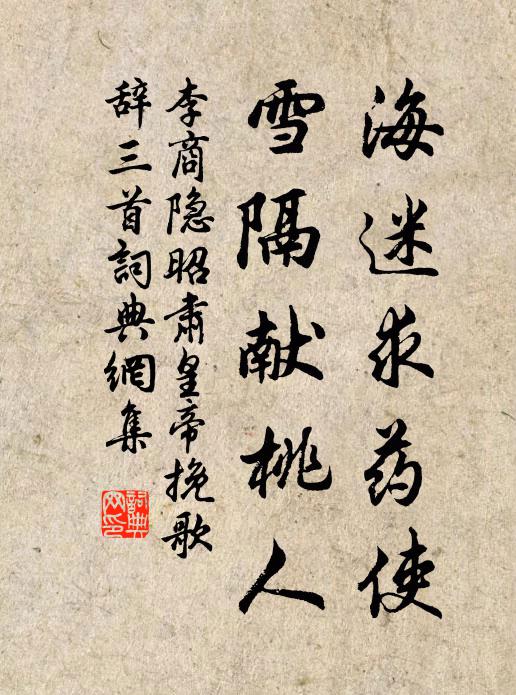 海迷求药使
雪隔献桃人
李商隐昭肃皇帝挽歌
辞三首詞典網集
詞典网印